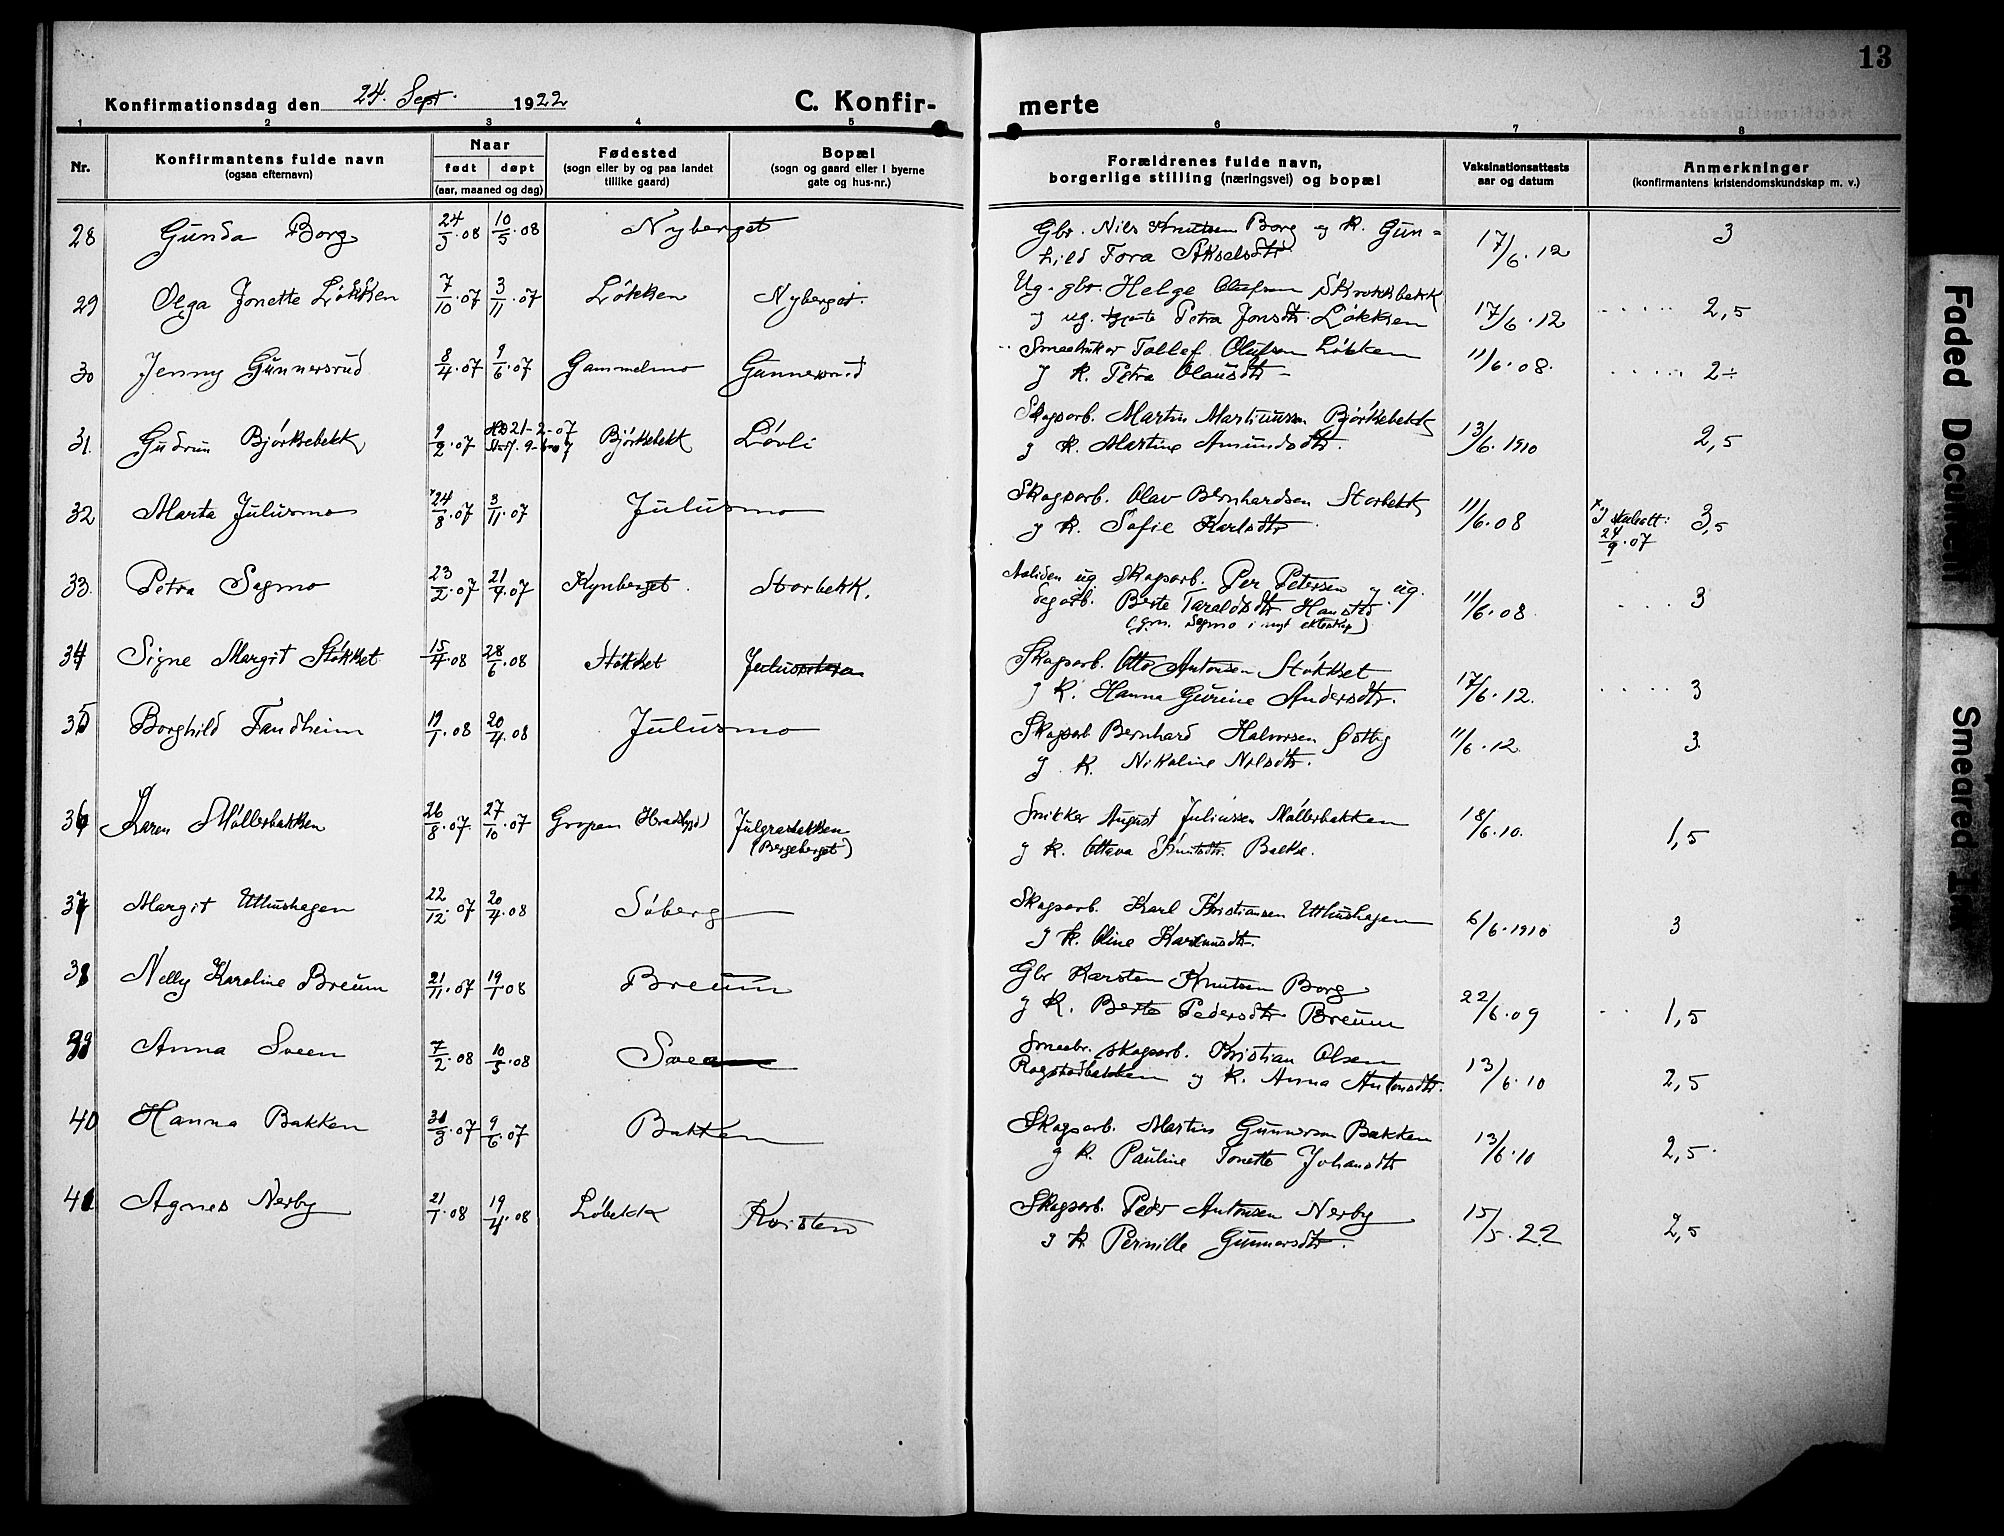 13
Konfirmationsdag den 24. Sept. 1922 C. Konfir- merte
1 2 3 4 5 6 7 8
Nr. Konfirmantens fulde navn (ogsaa efternavn) Naar født døpt (aar, maaned og dag) Fødested (sogn eller by og paa landet tillike gaard) Bopæl (sogn og gaard eller i byerne gate og hus-nr.) Forældrenes fulde navn, borgerlige stilling (næringsvei) og bopæl Vaksinationsattests aar og datum Anmerkninger (konfirmantens kristendomskundskap m. v.)
28 Gunda Borg 24/3.08 10/5.08 Nyberget Gbr. Nils Knutsen Borg og k. Gun-
hild Tora Akselsdtr 17/6.12 3
29 Olga Jonette Løkken 7/10.07 3/11.07 Løkken Nyberget. Ug. gbr. Helge Olafsen Skrokkbekk
og ug. Petra Jonsdtr. Løkken 17/6.12 2,5
30 Jenny Gunnersrud 8/4.07 9/6.07 Gammelmo Gunnersrud Smaabruker Tollef Olufsen Løkken
og k. Petra Olausdtr 11/6.08. 2÷
31. Gudrun Bjørksebekk 9/2.07 21-2-07 Stadf. 9-6-07 Bjørksebekk Løvli Skogsarb. Martin Martinussen Bjørksebekk
og k. Martine Amundsdtr. 13/6.1910 2,5
32 Marta Julusmo 24/8.07 3/11.07 Julusmo Skogsarb. Olav Bernhardsen Storbekk
og k. Sofie Karlsdtr. 11/6.08 24/9.07 3,5
33. Petra Segmo 23/2.07 21/4.07 Kynberget. Storbekk. ug. Skogsarb. Per Petersen og ug.
Berte Taraldsdtr. Hanstad
(gm. Segmo i nyt ekteskap) 11/6.08 3
34 Signe Margit Støkket 15/4.08 28/6.08 Støkket Skogsarb. Otto Antonsen Støkket
og k. Hanna Gurine Andersdtr. 17/6.12. 3
35 Borghild Tandheim 19/1.08 20/4.08 Julusmo Skogsarb Bernhard Halvorsen Østby
og k. Nikoline Nilsdtr. 11/6.12 3
36 Karen Møllerbakken 26/8.07. 27/10.07 Gropen Julgrabakken
(Bergeberget) Snikker August Juliussen Møllerbakken
og k. Ottava Knutsdtr. Bakke. 18/6.10. 1,5
37 Margit Uthushagen 22/12.07 20/4.08 Søberg Skogsarb. Karl Kristiansen Uthushagen
og k. Oline 6/6.1910 3
38 Nelly Karoline Breum 21/11.07 19/1.08 Breum Gbr Karsten Knutsen Borg
og k. Berte Pedersdtr Breum 22/6.09 1,5
39 Anna Sveen 7/2.08 10/5.08 Sveen Smaabr. skogsarb. Kristian Olsen
Rogstadbakken og k. Anna Antonsdtr. 13/6.10 2,5
40 Hanna Bakken 31/3.07 9/6.07 Bakken Skogsarb. Martin Gunnersen Bakken
og k. Pauline Tonette Johansdtr 13/6.10 2,5.
41 Agnes Nerby 21/1.08 19/4.08 Løbekk Skogsarb. Peder Antonsen Nerby
og k. Pernille Gunnarsdtr. 15/5.22 2,5
Faded Document
Smeared Ink